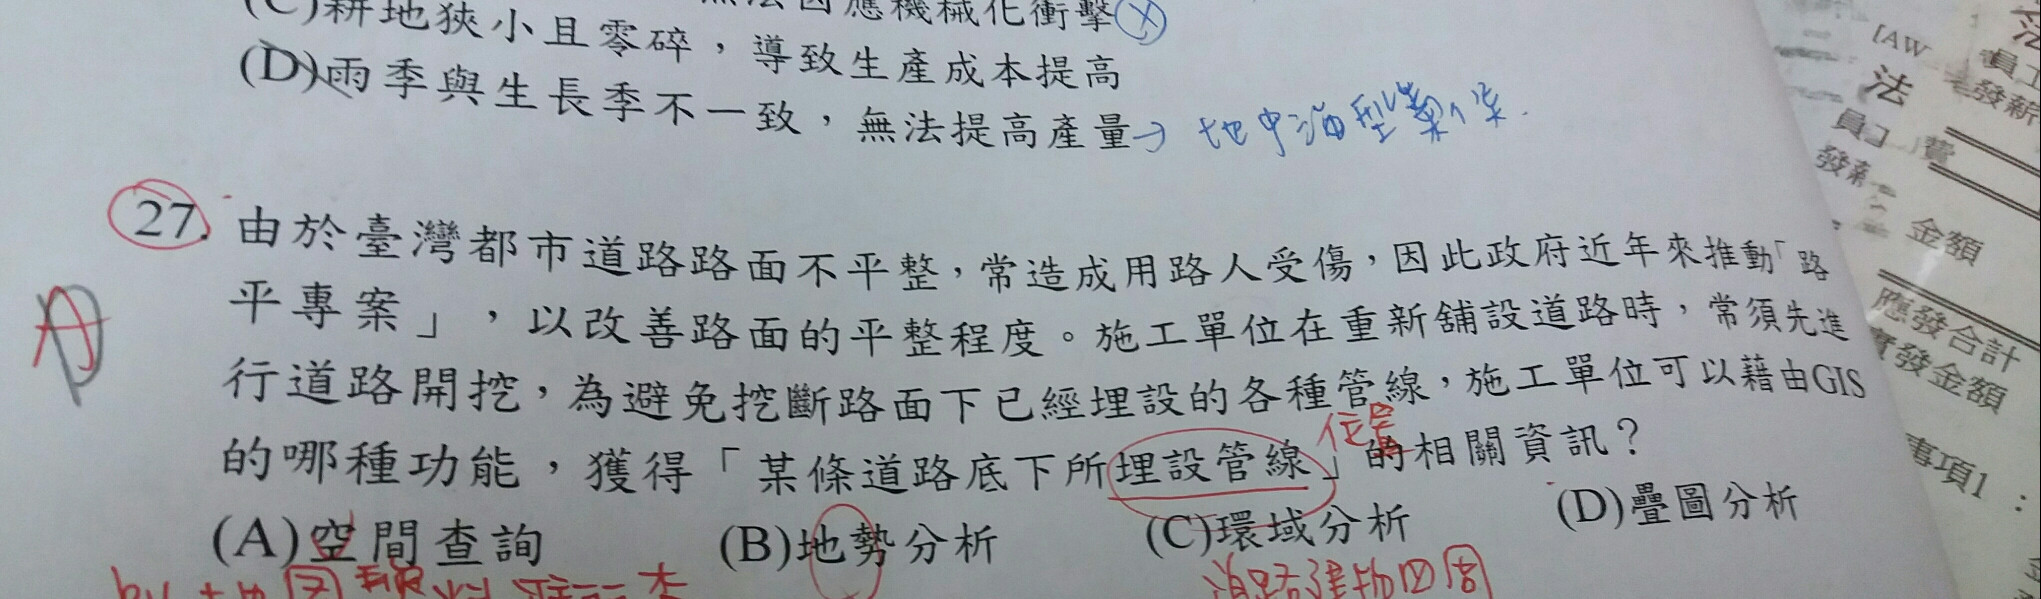 (C)耕地狹小且零碎，導致生產成本提高
(D)雨季與生長季不一致，無法提高產量→地中海型氣候
27. 由於臺灣都市道路路面不平整，常造成用路人受傷，因此政府近年來推動「路
平專案」，以改善路面的平整程度。施工單位在重新舖設道路時，常須先進
行道路開挖，為避免挖斷路面下已經埋設的各種管線，施工單位可以藉由GIS
的哪種功能，獲得「某條道路底下所埋設管線」的相關資訊？
位置
A
(A)空間查詢 (B)地勢分析 (C)環域分析 (D)疊圖分析
[AW
法
員工
發薪
費
金額
應發合計
實發金額
事項1：